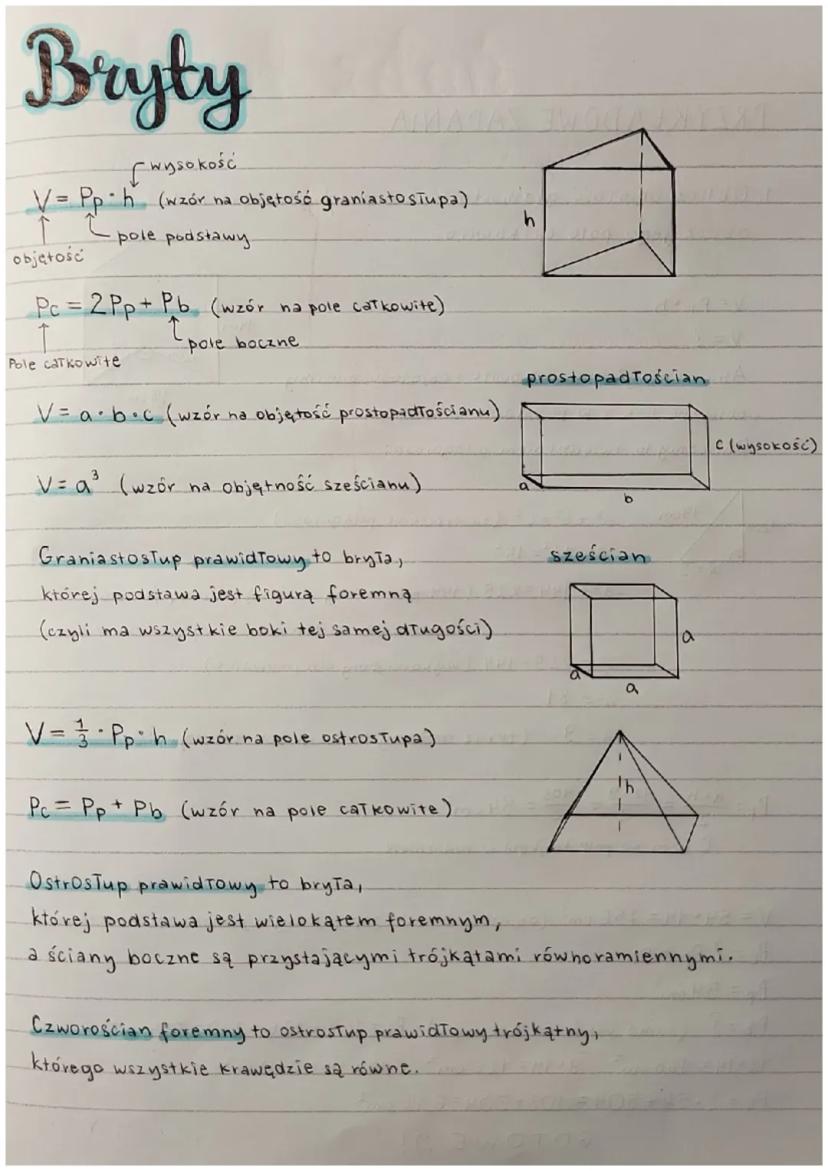 Bryły
wysokość
V = Pp · h (wzór na objętość graniastosłupa)
h
pole podstawy
objętość
Pc = 2Pp + Pb (wzór na pole całkowite)
pole boczne
Pole całkowite
prostopadłościan
V = a · b · c (wzór na objętość prostopadłościanu)
c (wysokość)
a
b
V = a³ (wzór na objętność sześcianu)
Graniastosłup prawidłowy to bryła,
sześcian
której podstawa jest figurą foremną
(czyli ma wszystkie boki tej samej długości)
a
a
a
V = 1/3 · Pp · h (wzór na pole ostrosłupa)
h
Pc = Pp + Pb (wzór na pole całkowite)
Ostrosłup prawidłowy to bryła,
której podstawa jest wielokątem foremnym,
a ściany boczne są przystającymi trójkątami równoramiennymi.
Czworościan foremny to ostrosłup prawidłowy trójkątny,
którego wszystkie krawędzie są równe.